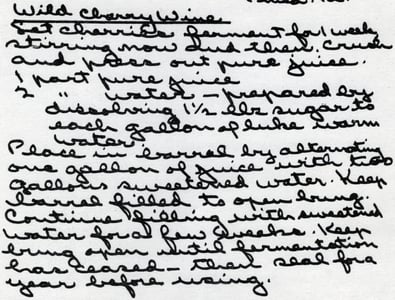 Wild Cherry Wine
Let cherries ferment for 1 week
stirring now and then. Crush
and press out pure juice.
1 part pure juice
2 " water - prepared by
dissolving 1½ lbs sugar to
each gallon of luke warm
water.
Place in barrel by alternating
one gallon of juice with two
gallons sweetened water. Keep
barrel filled to open bung.
Continue filling with sweetened
water for a few weeks. Keep
bung open until fermentation
has ceased - then seal for a
year before using.